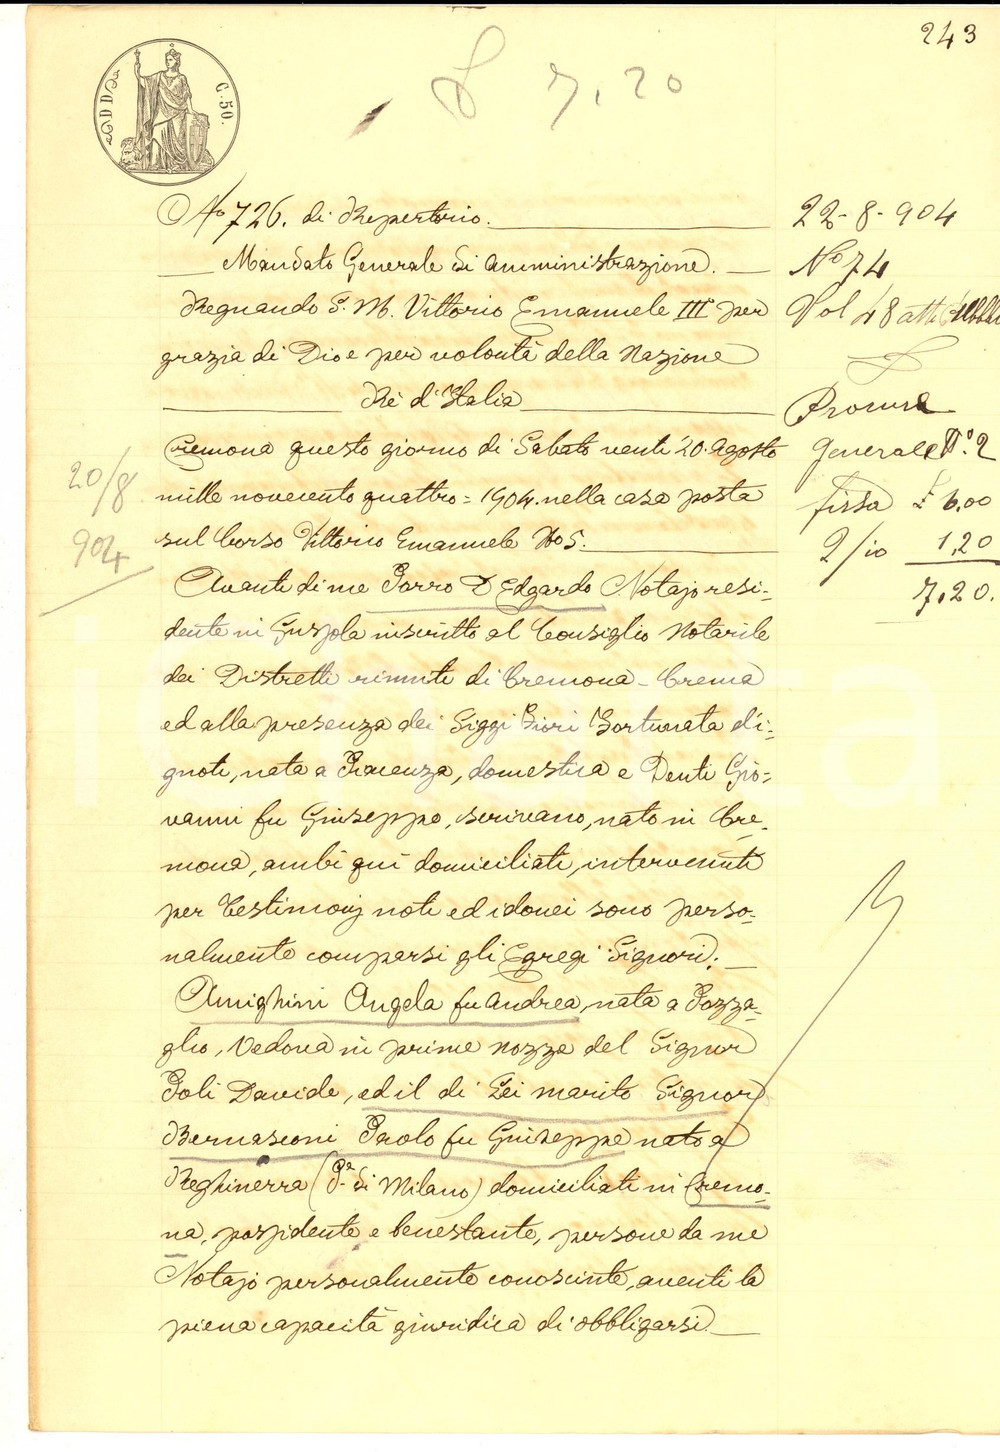 243
£ 7,20
C. 50.
No 726. di Repertorio.
Mandato Generale di Amministrazione.
Regnando S. M. Vittorio Emanuele III° per
grazia di Dio e per volontà della Nazione
Rè d'Italia
Cremona questo giorno di Sabato venti 20. Agosto
mille novecento quattro = 1904. nella casa posta
sul Corso Vittorio Emanuele No 5.
Avanti di me Porro Dr Edgardo Notajo resi-
dente in Gussola inscritto al Consiglio Notarile
dei Distretti riuniti di Cremona - Crema
ed alla presenza dei Siggi Fiori Fortunata d'i-
gnoti, nata a Piacenza, domestica e Denti Gio-
vanni fu Giuseppe, scrivano, nato in Cre-
mona, ambi quì domiciliati, intervenuti
per testimonj noti ed idonei sono perso-
nalmente comparsi gli Egregi Signori:
Amighini Angela fu Andrea, nata a Pozza-
glio, Vedova in prime nozze del Signor
Poli Davide, ed il di Lei marito Signor
Bernasconi Paolo fu Giuseppe nato a
(Pa di Milano) domiciliati in Cremo-
na, possidente e benestante, persone da me
Notajo personalmente conosciute, aventi la
piena capacità giuridica di obbligarsi.
20/8
904
22-8-904
No 74
Vol 48 atti Pubblici
Procura
Generale No. 2
fissa £ 6,00
2/10 1,20
7,20.